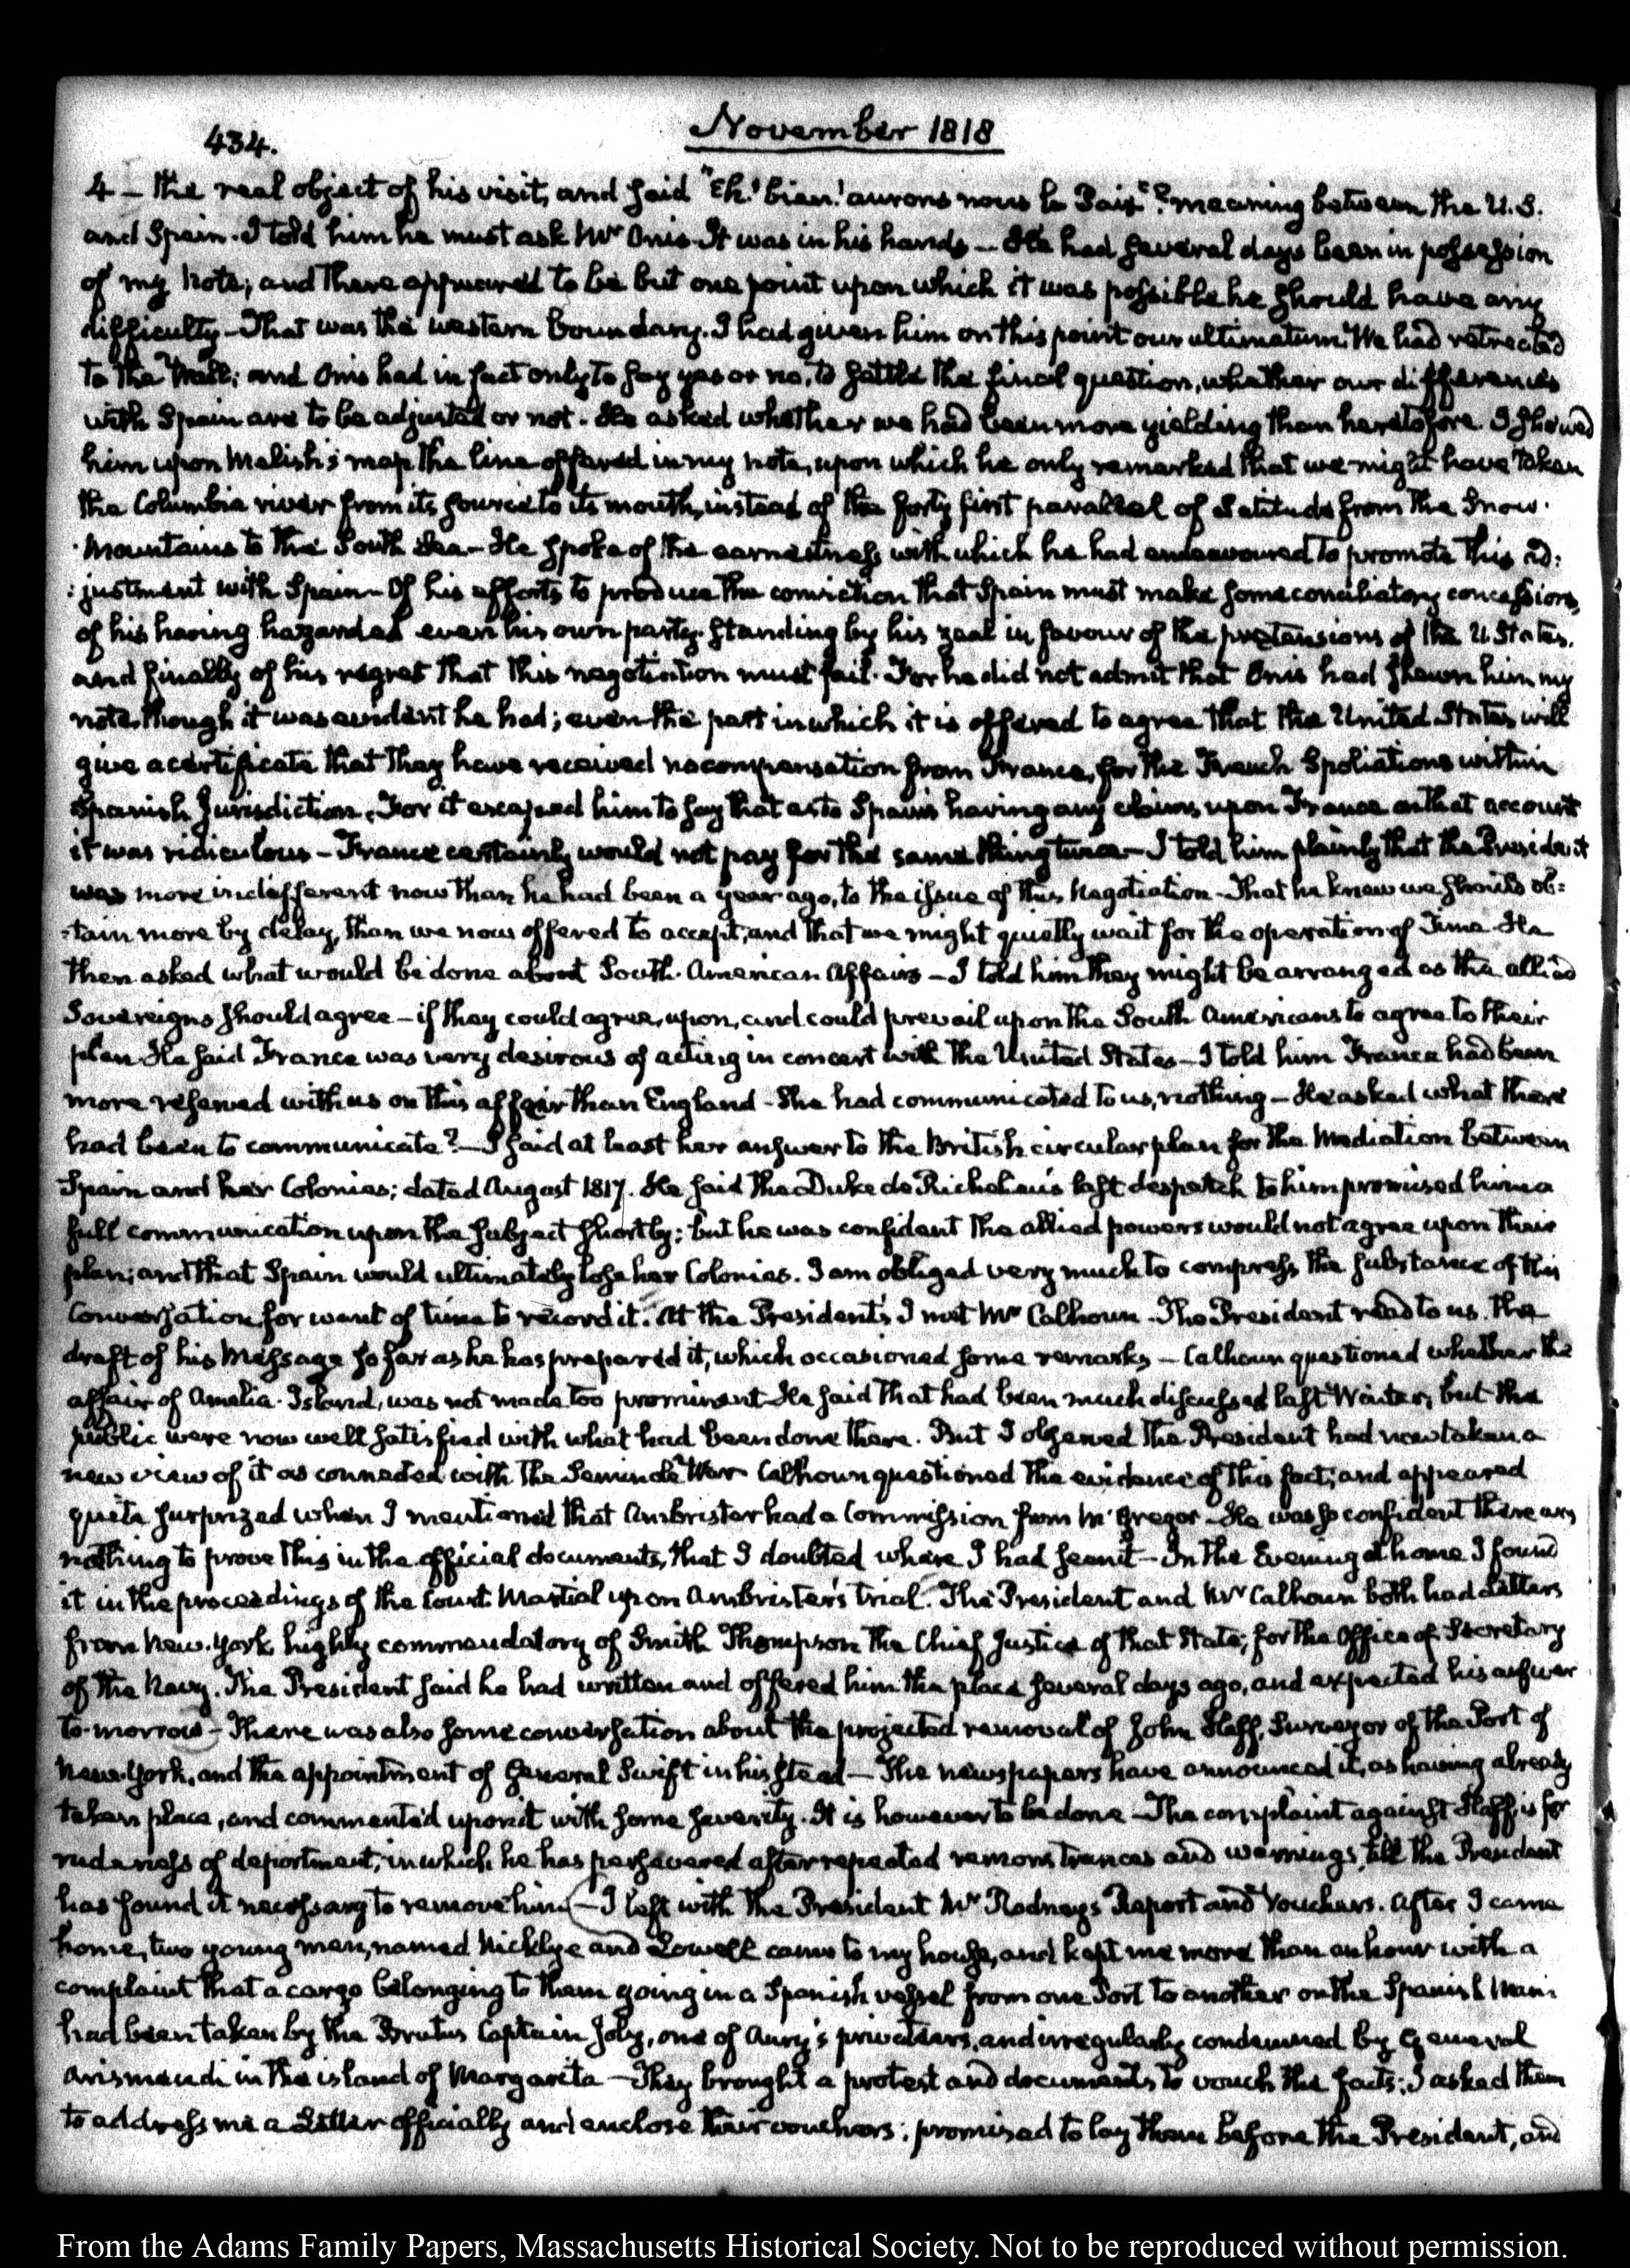 434.
November 1818
4 — the real object of his visit, and said "Eh! bien! aurons nous la Paix"? meaning between the U.S.
and Spain. I told him he must ask Mr Onis. It was in his hands — He had several days been in possession
of my Note; and there appeared to be but one point upon which it was possible he should have any
difficulty — That was the western boundary. I had given him on this point our ultimatum. We had retreated
to the Wall; and Onis had in fact only to say yes or no, to settle the final question, whether our differences
with Spain are to be adjusted or not. He asked whether we had been more yielding than heretofore. I shewed
him upon Melish's map the line offered in my note, upon which he only remarked that we might have taken
the Columbia river from its source to its mouth, instead of the forty first parallel of Latitude from the Snow-
-Mountains to the South Sea — He spoke of the earnestness with which he had endeavoured to promote this ad:
:justment with Spain — Of his efforts to produce the conviction that Spain must make some conciliatory concessions,
of his having hazarded even his own party-standing by his zeal in favour of the pretensions of the U. States,
and finally of his regret that this negotiation must fail. For he did not admit that Onis had shewn him my
note, though it was evident he had; even the part in which it is offered to agree that the United States will
give a certificate that they have received no compensation from France, for the French Spoliations within
Spanish Jurisdiction. For it escaped him to say that as to Spain's having any claims upon France on that account
it was ridiculous — France certainly would not pay for the same thing twice — I told him plainly that the President
was more indifferent now than he had been a year ago, to the issue of this Negotiation — That he knew we should ob:
:tain more by delay, than we now offered to accept, and that we might quietly wait for the operation of Time. He
then asked what would be done about South-American Affairs — I told him they might be arranged as the allied
Sovereigns should agree — if they could agree, upon, and could prevail upon the South Americans to agree to their
plan. He said France was very desirous of acting in concert with the United States — I told him France had been
more reserved with us on this affair than England — She had communicated to us, nothing — He asked what there
had been to communicate? — I said at least her answer to the British circular plan for the Mediation between
Spain and her Colonies; dated August 1817. He said the Duke de Richelieu's last despatch to him promised him a
full communication upon the subject shortly; but he was confident the allied powers would not agree upon their
plan; and that Spain would ultimately lose her Colonies. I am obliged very much to compress the substance of this
Conversation, for want of time to record it. At the President's I met Mr Calhoun. The President read to us the
draft of his Message so far as he has prepared it, which occasioned some remarks — Calhoun questioned whether the
affair of Amelia-Island, was not made too prominent. He said that had been much discussed last Winter; but the
public were now well satisfied with what had been done there. But I observed the President had now taken a
new view of it as connected with the Seminole War. Calhoun questioned the evidence of this fact; and appeared
quite surprized when I mentioned that Ambrister had a Commission from McGregor — He was so confident there was
nothing to prove this in the official documents, that I doubted where I had seen it — In the Evening at home I found
it in the proceedings of the Court-Martial upon Ambrister's trial. The President and Mr Calhoun both had letters
from New-York, highly commendatory of Smith Thompson the Chief Justice of that State, for the Office of Secretary
of the Navy. The President said he had written and offered him the place several days ago, and expected his answer
to-morrow — There was also some conversation about the projected removal of John Haff, Surveyor of the Port of
New-York, and the appointment of General Swift in his stead — The newspapers have announced it, as having already
taken place, and commented upon it with some severity. It is however to be done — The complaint against Haff, is for
rudeness of deportment; in which he has persevered after repeated remonstrances and warnings, till the President
has found it necessary to remove him — I left with the President Mr Rodney's Report and Vouchers. After I came
home, two young men, named Nicklye and Lowell came to my house, and kept me more than an hour with a
complaint that a cargo belonging to them going in a Spanish vessel from one Port to another on the Spanish Main
had been taken by the Brutus Captain Joly, one of Aury's privateers, and irregularly condemned by General
Arismendi in the island of Margarita — They brought a protest and documents to vouch the facts; I asked them
to address me a Letter officially and enclose their vouchers; promised to lay them before the President, and
From the Adams Family Papers, Massachusetts Historical Society. Not to be reproduced without permission.